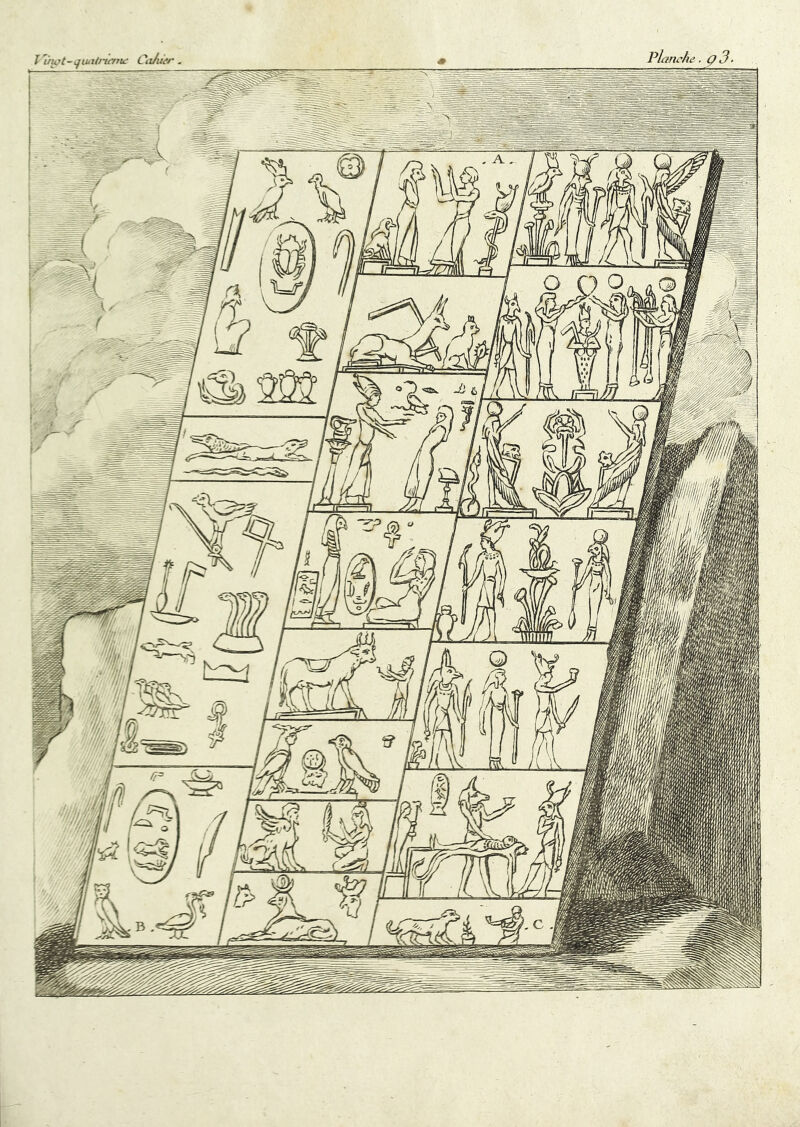 Vingt-quatrieme Cahier.
Planche. 93.
. A .
B .
. C .